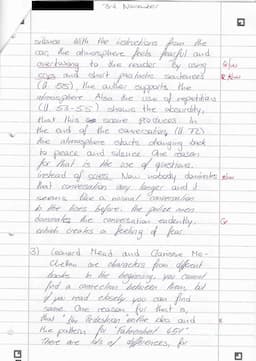 3rd November
silence. With the instructions from the
car, the atmosphere feels fearful and
overtwaing to the reader. By using
and short paratactic sentences
(ll. 55), the author supports the
atmosphere. Also the use of repetition
(ll. 53-55) shows the absurdity,
that this scene produces. In
the end of the conversation (ll. 72)
the atmosphere starts changing back
to peace and silence. One reason
for that is the use of questions
instead of Now nobody dominates
that conversation any longer and it
seems like a normal conversation
in the lines before, the police men
dominates the conversation evidently,
which creates a feeling of fear.
3) Leonard Mead and Clarisse Mc-
Clellan are characters from different
books. In the beginning, you cannot
find a connection between them, but
if you read closely you can find
some. One reason for that is,
that "the Pedestrian" the idea and
the pattern for "Fahrenheit 451".
There are lots of differences, for